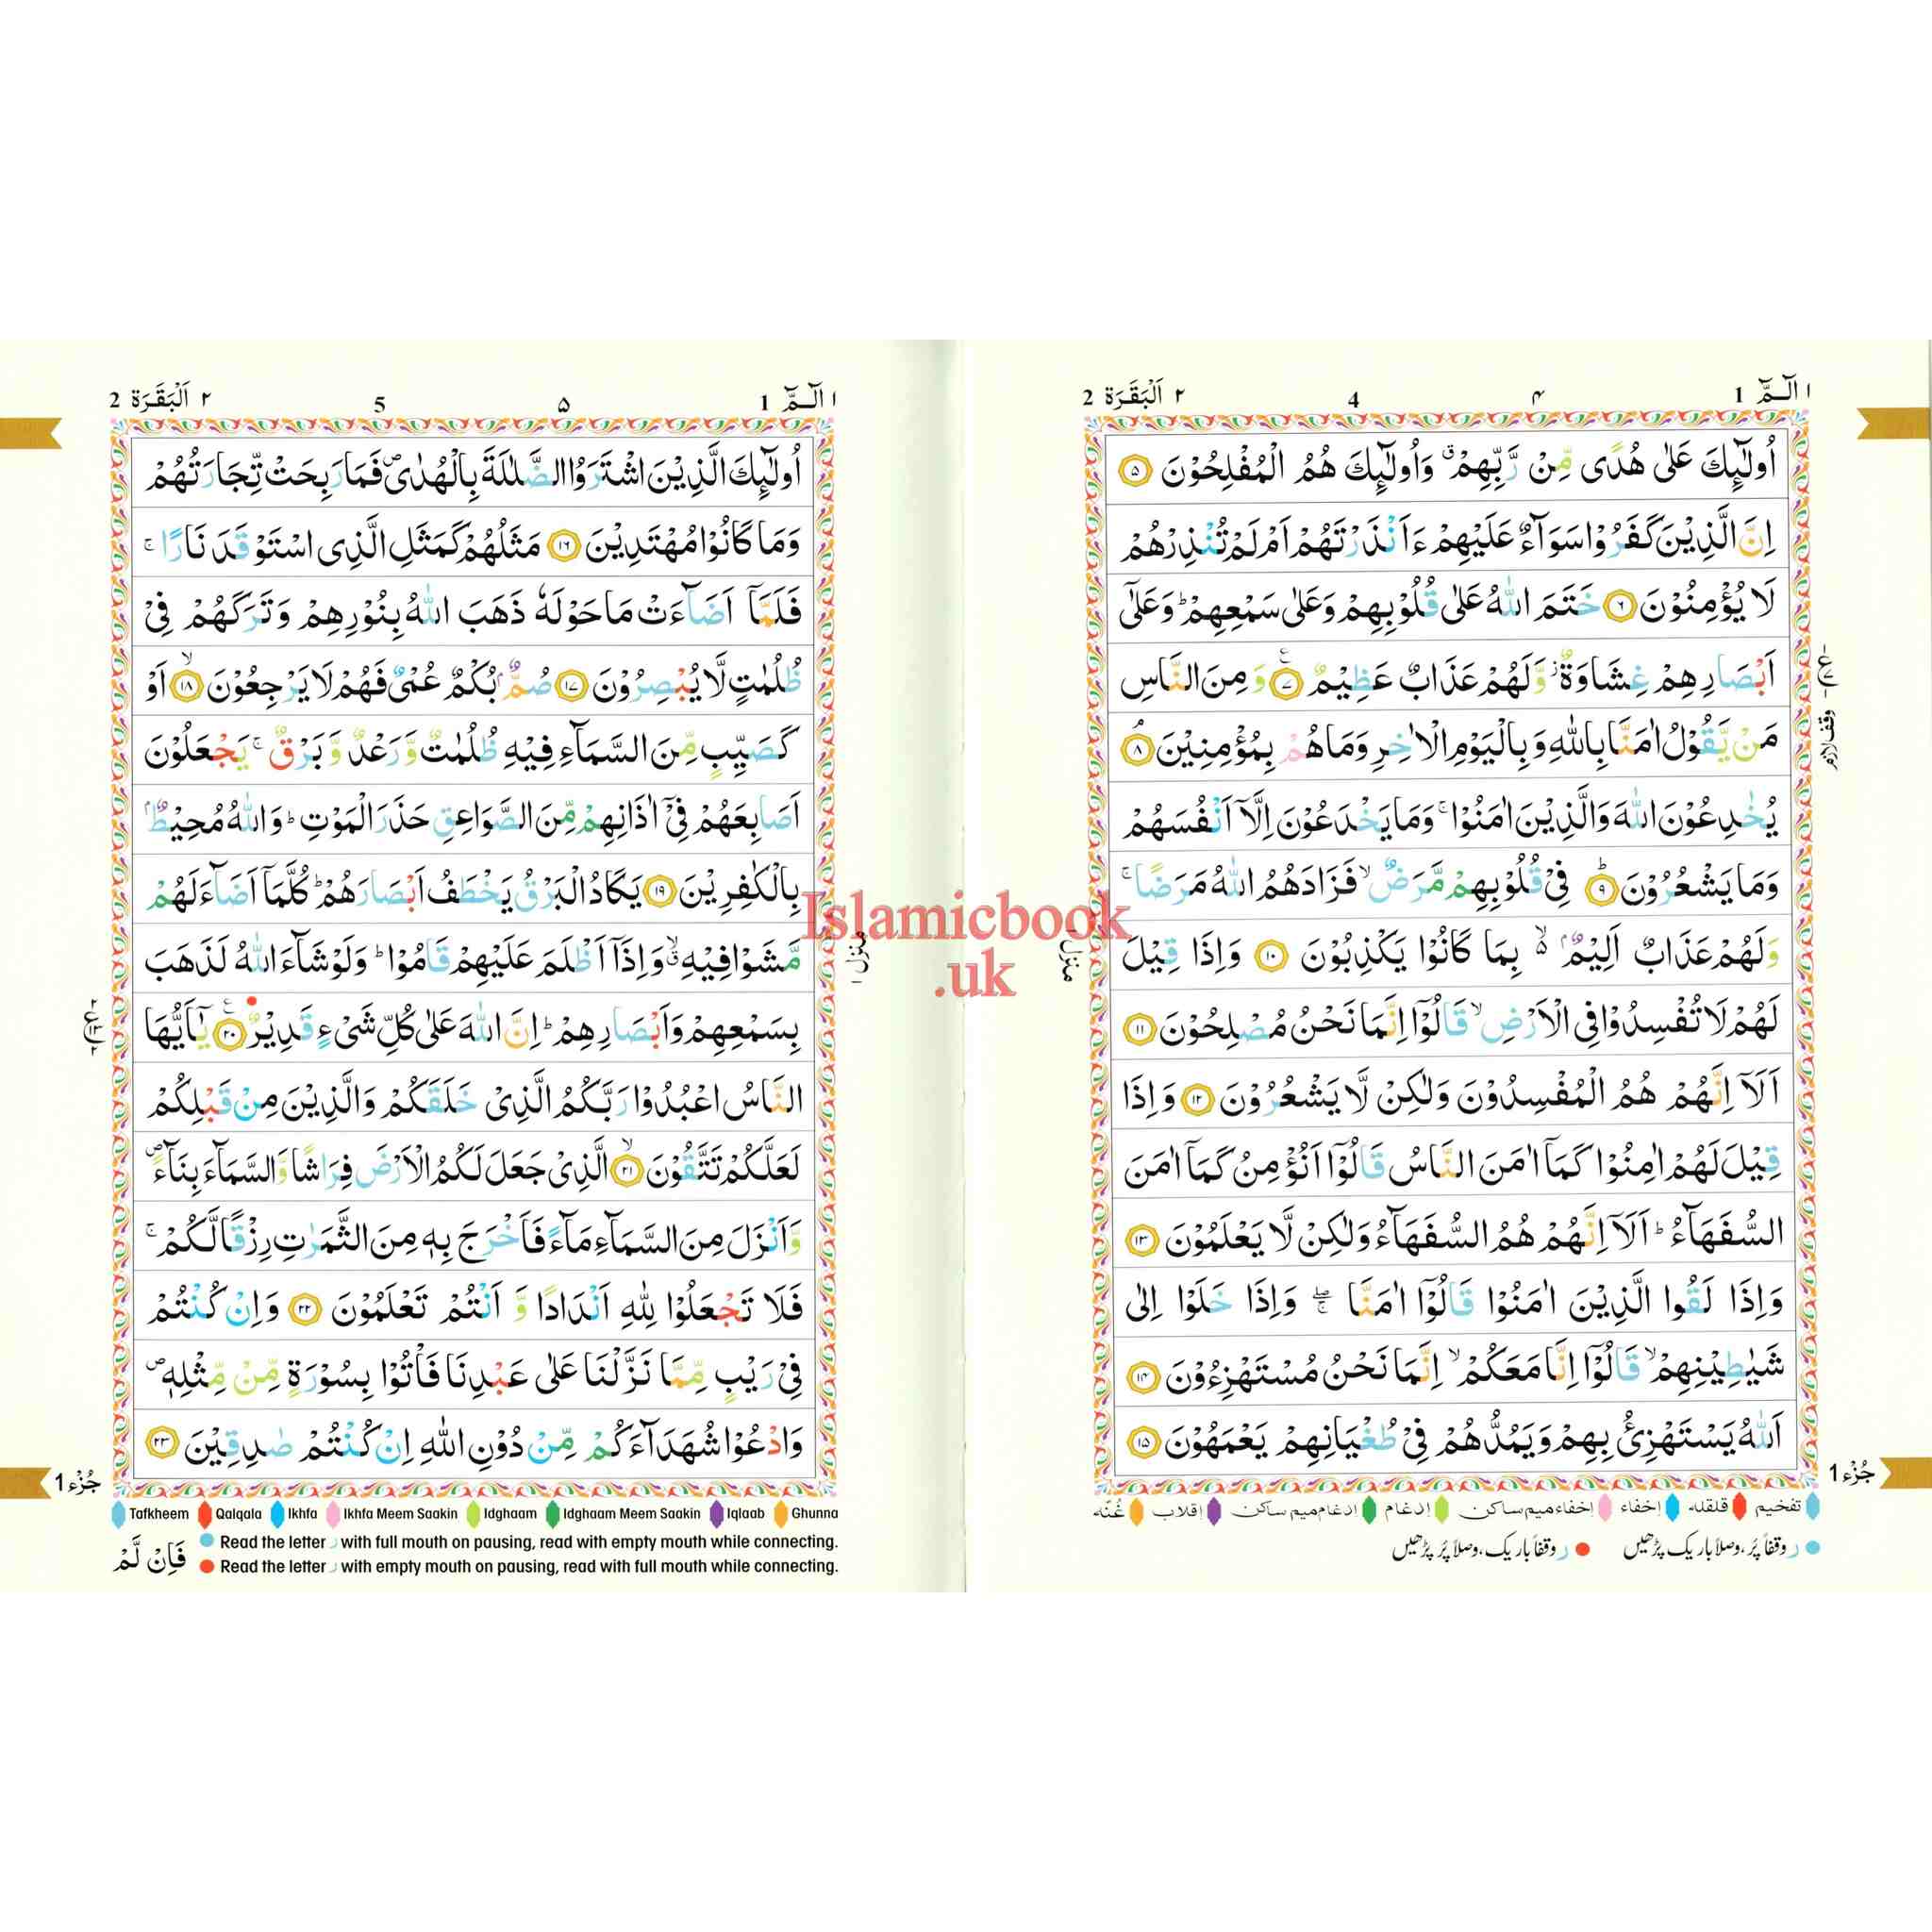 ١ الٓـمّٓ 1
۴
4
٢ اَلْبَقَرَة 2
اُولٰٓئِكَ عَلٰى هُدًى مِّنْ رَّبِّهِمْ ۗ وَاُولٰٓئِكَ هُمُ الْمُفْلِحُوْنَ ۵
اِنَّ الَّذِيْنَ كَفَرُوْا سَوَآءٌ عَلَيْهِمْ ءَاَنْذَرْتَهُمْ اَمْ لَمْ تُنْذِرْهُمْ
لَا يُؤْمِنُوْنَ ۶ خَتَمَ اللّٰهُ عَلٰى قُلُوْبِهِمْ وَعَلٰى سَمْعِهِمْ ؕ وَعَلٰٓى
اَبْصَارِهِمْ غِشَاوَةٌ ۫ وَّلَهُمْ عَذَابٌ عَظِيْمٌ ۷ وَمِنَ النَّاسِ
مَنْ يَّقُوْلُ اٰمَنَّا بِاللّٰهِ وَبِالْيَوْمِ الْاٰخِرِ وَمَا هُمْ بِمُؤْمِنِيْنَ ۸
يُخٰدِعُوْنَ اللّٰهَ وَالَّذِيْنَ اٰمَنُوْا ۚ وَمَا يَخْدَعُوْنَ اِلَّآ اَنْفُسَهُمْ
وَمَا يَشْعُرُوْنَ ۹ فِيْ قُلُوْبِهِمْ مَّرَضٌ ۙ فَزَادَهُمُ اللّٰهُ مَرَضًا ۚ
وَلَهُمْ عَذَابٌ اَلِيْمٌۢ ۙ بِمَا كَانُوْا يَكْذِبُوْنَ ۱۰ وَاِذَا قِيْلَ
لَهُمْ لَا تُفْسِدُوْا فِى الْاَرْضِ ۙ قَالُوْٓا اِنَّمَا نَحْنُ مُصْلِحُوْنَ ۱۱
اَلَآ اِنَّهُمْ هُمُ الْمُفْسِدُوْنَ وَلٰكِنْ لَّا يَشْعُرُوْنَ ۱۲ وَاِذَا
قِيْلَ لَهُمْ اٰمِنُوْا كَمَآ اٰمَنَ النَّاسُ قَالُوْٓا اَنُؤْمِنُ كَمَآ اٰمَنَ
السُّفَهَآءُ ؕ اَلَآ اِنَّهُمْ هُمُ السُّفَهَآءُ وَلٰكِنْ لَّا يَعْلَمُوْنَ ۱۳
وَاِذَا لَقُوا الَّذِيْنَ اٰمَنُوْا قَالُوْٓا اٰمَنَّا ۖۚ وَاِذَا خَلَوْا اِلٰى
شَيٰطِيْنِهِمْ ۙ قَالُوْٓا اِنَّا مَعَكُمْ ۙ اِنَّمَا نَحْنُ مُسْتَهْزِءُوْنَ ۱۴
اَللّٰهُ يَسْتَهْزِئُ بِهِمْ وَيَمُدُّهُمْ فِيْ طُغْيَانِهِمْ يَعْمَهُوْنَ ۱۵
وقف لازم
منزل ۱
جُزْء 1
تفخیم قلقله إخفاء إخفاء میم ساکن إدغام إدغام میم ساکن إقلاب غُنّه
ر وقفاً پُر، وصلاً باریک پڑھیں
ر وقفاً باریک، وصلاً پُر پڑھیں
١ الٓـمّٓ 1
۵
5
٢ اَلْبَقَرَة 2
اُولٰٓئِكَ الَّذِيْنَ اشْتَرَوُا الضَّلٰلَةَ بِالْهُدٰى ۪ فَمَا رَبِحَتْ تِّجَارَتُهُمْ
وَمَا كَانُوْا مُهْتَدِيْنَ ۱۶ مَثَلُهُمْ كَمَثَلِ الَّذِى اسْتَوْقَدَ نَارًا ۚ
فَلَمَّآ اَضَآءَتْ مَا حَوْلَهٗ ذَهَبَ اللّٰهُ بِنُوْرِهِمْ وَتَرَكَهُمْ فِيْ
ظُلُمٰتٍ لَّا يُبْصِرُوْنَ ۱۷ صُمٌّۢ بُكْمٌ عُمْىٌ فَهُمْ لَا يَرْجِعُوْنَ ۱۸ اَوْ
كَصَيِّبٍ مِّنَ السَّمَآءِ فِيْهِ ظُلُمٰتٌ وَّرَعْدٌ وَّبَرْقٌ ۚ يَجْعَلُوْنَ
اَصَابِعَهُمْ فِيْٓ اٰذَانِهِمْ مِّنَ الصَّوَاعِقِ حَذَرَ الْمَوْتِ ؕ وَاللّٰهُ مُحِيْطٌۢ
بِالْكٰفِرِيْنَ ۱۹ يَكَادُ الْبَرْقُ يَخْطَفُ اَبْصَارَهُمْ ؕ كُلَّمَآ اَضَآءَ لَهُمْ
مَّشَوْا فِيْهِ ۙ وَاِذَآ اَظْلَمَ عَلَيْهِمْ قَامُوْا ؕ وَلَوْ شَآءَ اللّٰهُ لَذَهَبَ
بِسَمْعِهِمْ وَاَبْصَارِهِمْ ؕ اِنَّ اللّٰهَ عَلٰى كُلِّ شَىْءٍ قَدِيْرٌ ۲۰ يٰٓاَيُّهَا
النَّاسُ اعْبُدُوْا رَبَّكُمُ الَّذِيْ خَلَقَكُمْ وَالَّذِيْنَ مِنْ قَبْلِكُمْ
لَعَلَّكُمْ تَتَّقُوْنَ ۲۱ الَّذِيْ جَعَلَ لَكُمُ الْاَرْضَ فِرَاشًا وَّالسَّمَآءَ بِنَآءً ۪
وَّاَنْزَلَ مِنَ السَّمَآءِ مَآءً فَاَخْرَجَ بِهٖ مِنَ الثَّمَرٰتِ رِزْقًا لَّكُمْ ۚ
فَلَا تَجْعَلُوْا لِلّٰهِ اَنْدَادًا وَّ اَنْتُمْ تَعْلَمُوْنَ ۲۲ وَاِنْ كُنْتُمْ
فِيْ رَيْبٍ مِّمَّا نَزَّلْنَا عَلٰى عَبْدِنَا فَأْتُوْا بِسُوْرَةٍ مِّنْ مِّثْلِهٖ ۪
وَادْعُوْا شُهَدَآءَكُمْ مِّنْ دُوْنِ اللّٰهِ اِنْ كُنْتُمْ صٰدِقِيْنَ ۲۳
منزل ۱
جُزْء 1
Tafkheem Qalqala Ikhfa Ikhfa Meem Saakin Idghaam Idghaam Meem Saakin Iqlaab Ghunna
Read the letter ر with full mouth on pausing, read with empty mouth while connecting.
Read the letter ر with empty mouth on pausing, read with full mouth while connecting.
فَاِنْ لَّمْ
Islamicbook
.uk